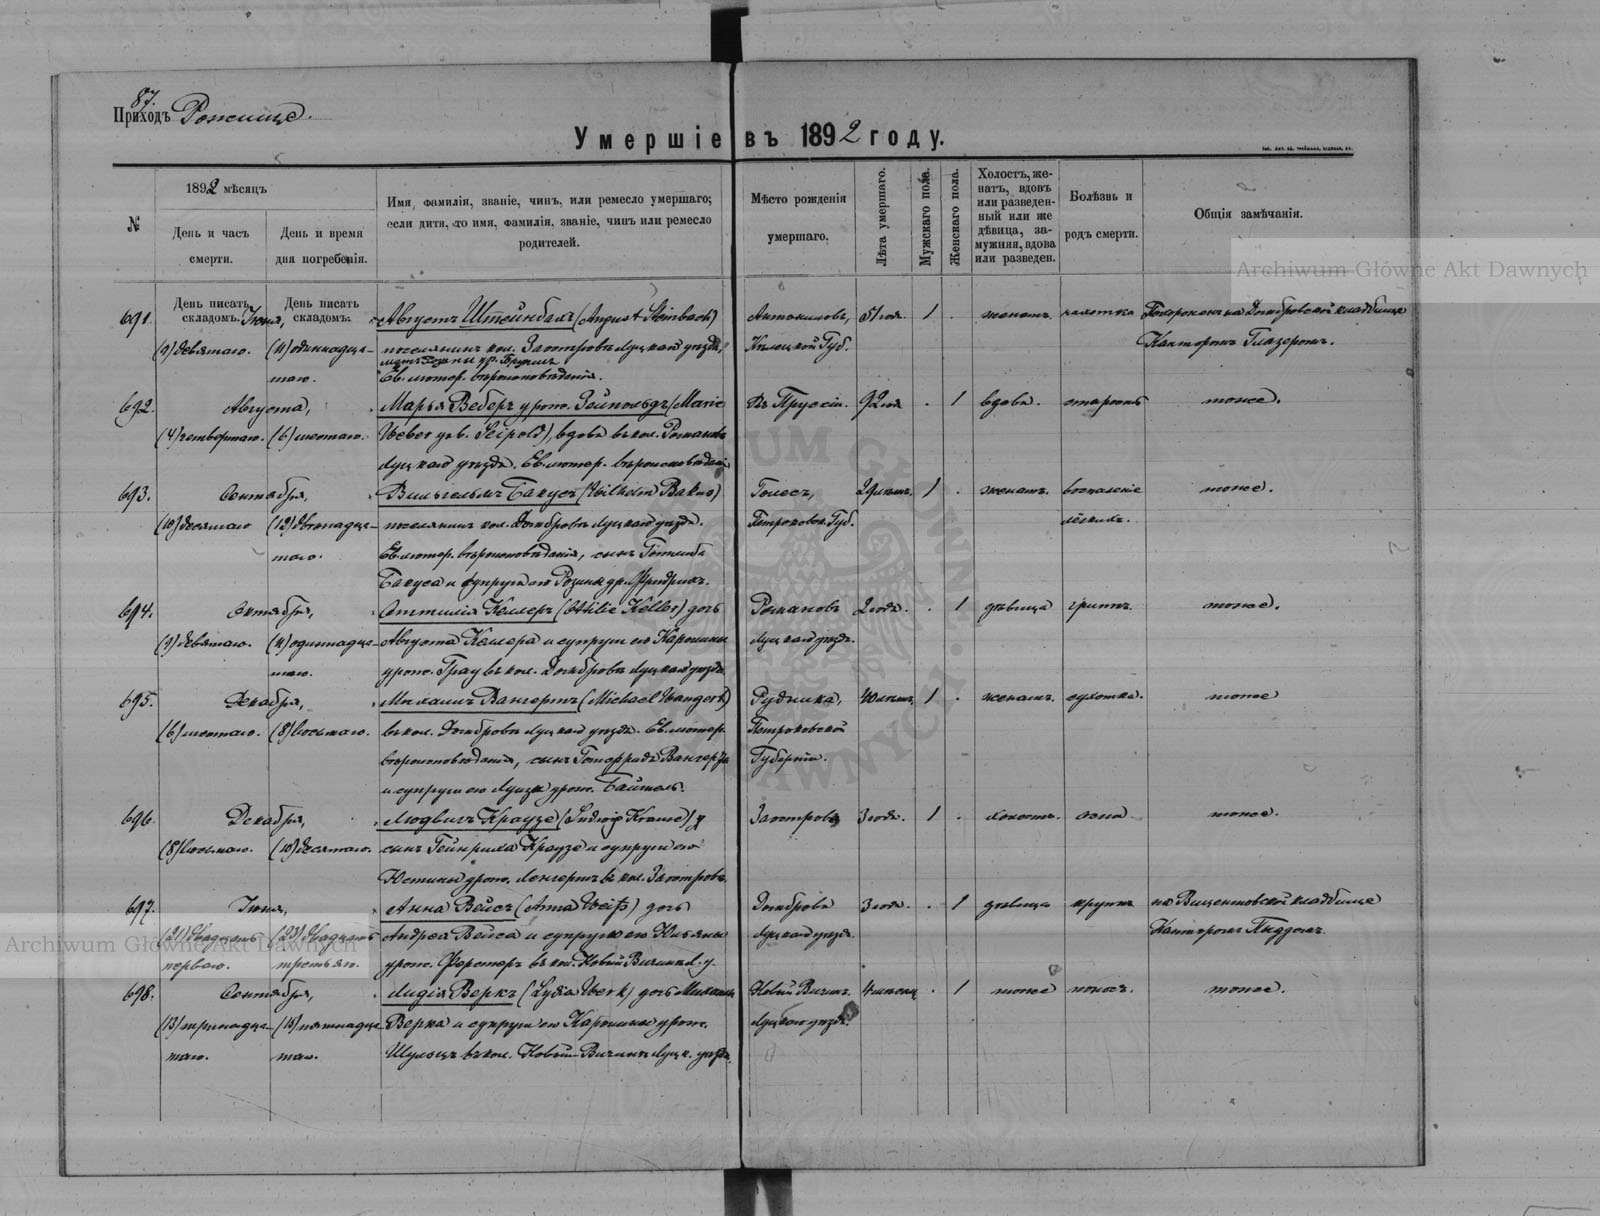 87.
Приходъ Рожище.
Умершіе въ 1892 году.
№
1892 мѣсяцъ
День и часъ смерти.
День и время дня погребенія.
Имя, фамилія, званіе, чинъ, или ремесло умершаго;
если дитя, то имя, фамилія, званіе, чинъ или ремесло
родителей.
Мѣсто рожденія
умершаго.
Лѣта умершаго.
Мужскаго пола.
Женскаго пола.
Холостъ, же-
натъ, вдовъ
или разведен-
ный или же
дѣвица, за-
мужняя, вдова
или разведен.
Болѣзнь и
родъ смерти.
Общія замѣчанія.
Archiwum Główne Akt Dawnych
День писать складомъ.
День писать складомъ.
691. Іюня, Августъ Штейнбахъ (August Steinbach) 1 женатъ чахотка Похороненъ на Домбровской кладбище
(9) девятаго. (11) одиннадца- поселянинъ кол. Заостровъ Луцкаго уѣзда, Губ. Канторомъ Глазеромъ.
таго. Ев. лютер. вѣроисповѣданія.
692. Августа, Марья Веберъ урож. Зейпольдъ (Marie Въ Пруссіи. 92 1 вдова. старость тоже.
(4) четвертаго. (6) шестаго. Weber geb. Seipold), вдова въ кол. Романовъ
Луцкаго уѣзда. Ев. лютер. вѣроисповѣданія
693. Сентября, Вильгельмъ Бакусъ (Wilhelm Bakus) 1 женатъ. воспаленіе тоже.
(10) десятаго (12) двѣнадца- поселянинъ кол. Домбровъ Луцкаго уѣзда. Петроковс. Губ. лёгкихъ.
таго. Ев. лютер. вѣроисповѣданія, сынъ Готлиба
Бакуса и супруги его Розины ур. Фридрихъ.
694. Октября, Оттилія Келлеръ (Othilie Keller) дочь Романовъ 2 года. 1 дѣвица тоже.
(9) девятаго. (11) одиннадца- Августа Келлера и супруги его Каролины Луцкаго уѣзда.
таго. урож. Грау въ кол. Домбровъ Луцкаго уѣзда.
695. Декабря, Михаилъ Вангертъ (Michael Wangert) Рудника, 40 лѣтъ. 1 женатъ. сухотка. тоже
(6) шестаго. (8) восьмаго. въ кол. Домбровъ Луцкаго уѣзда. Ев. лютер. Петроковской
вѣроисповѣданія, сынъ Готфрида Губерніи.
и супруги его Луизы урож.
696. Декабря, Людвигъ Краузе (Ludwig Krause) Заостровъ 3 года. 1 холостъ. оспа тоже.
(8) восьмаго. (10) десятаго. сынъ Гейнриха Краузе и супруги его
Юстины урож. въ кол. Заостровъ.
697. Іюня, Анна Вейсъ (Anna Weiß) дочь Домброва 3 года. 1 дѣвица крупъ на кладбище
(21) двадцать (23) двадцать Андрея Вейса и супруги его Луцкаго уѣзда. Канторомъ
перваго. третьяго. урож. Ферстеръ въ кол. Новый
Archiwum Główne Akt Dawnych
698. Сентября, Лидія Веркъ (Lydia Werk) дочь Михаила Новый 4 мѣсяц. 1 тоже поносъ. тоже.
(13) тринадца- (15) пятнадца- Верка и супруги его Каролины урож. Луцкаго уѣзда.
таго. таго. Шульцъ въ кол. Новый Луцк. уѣзда.